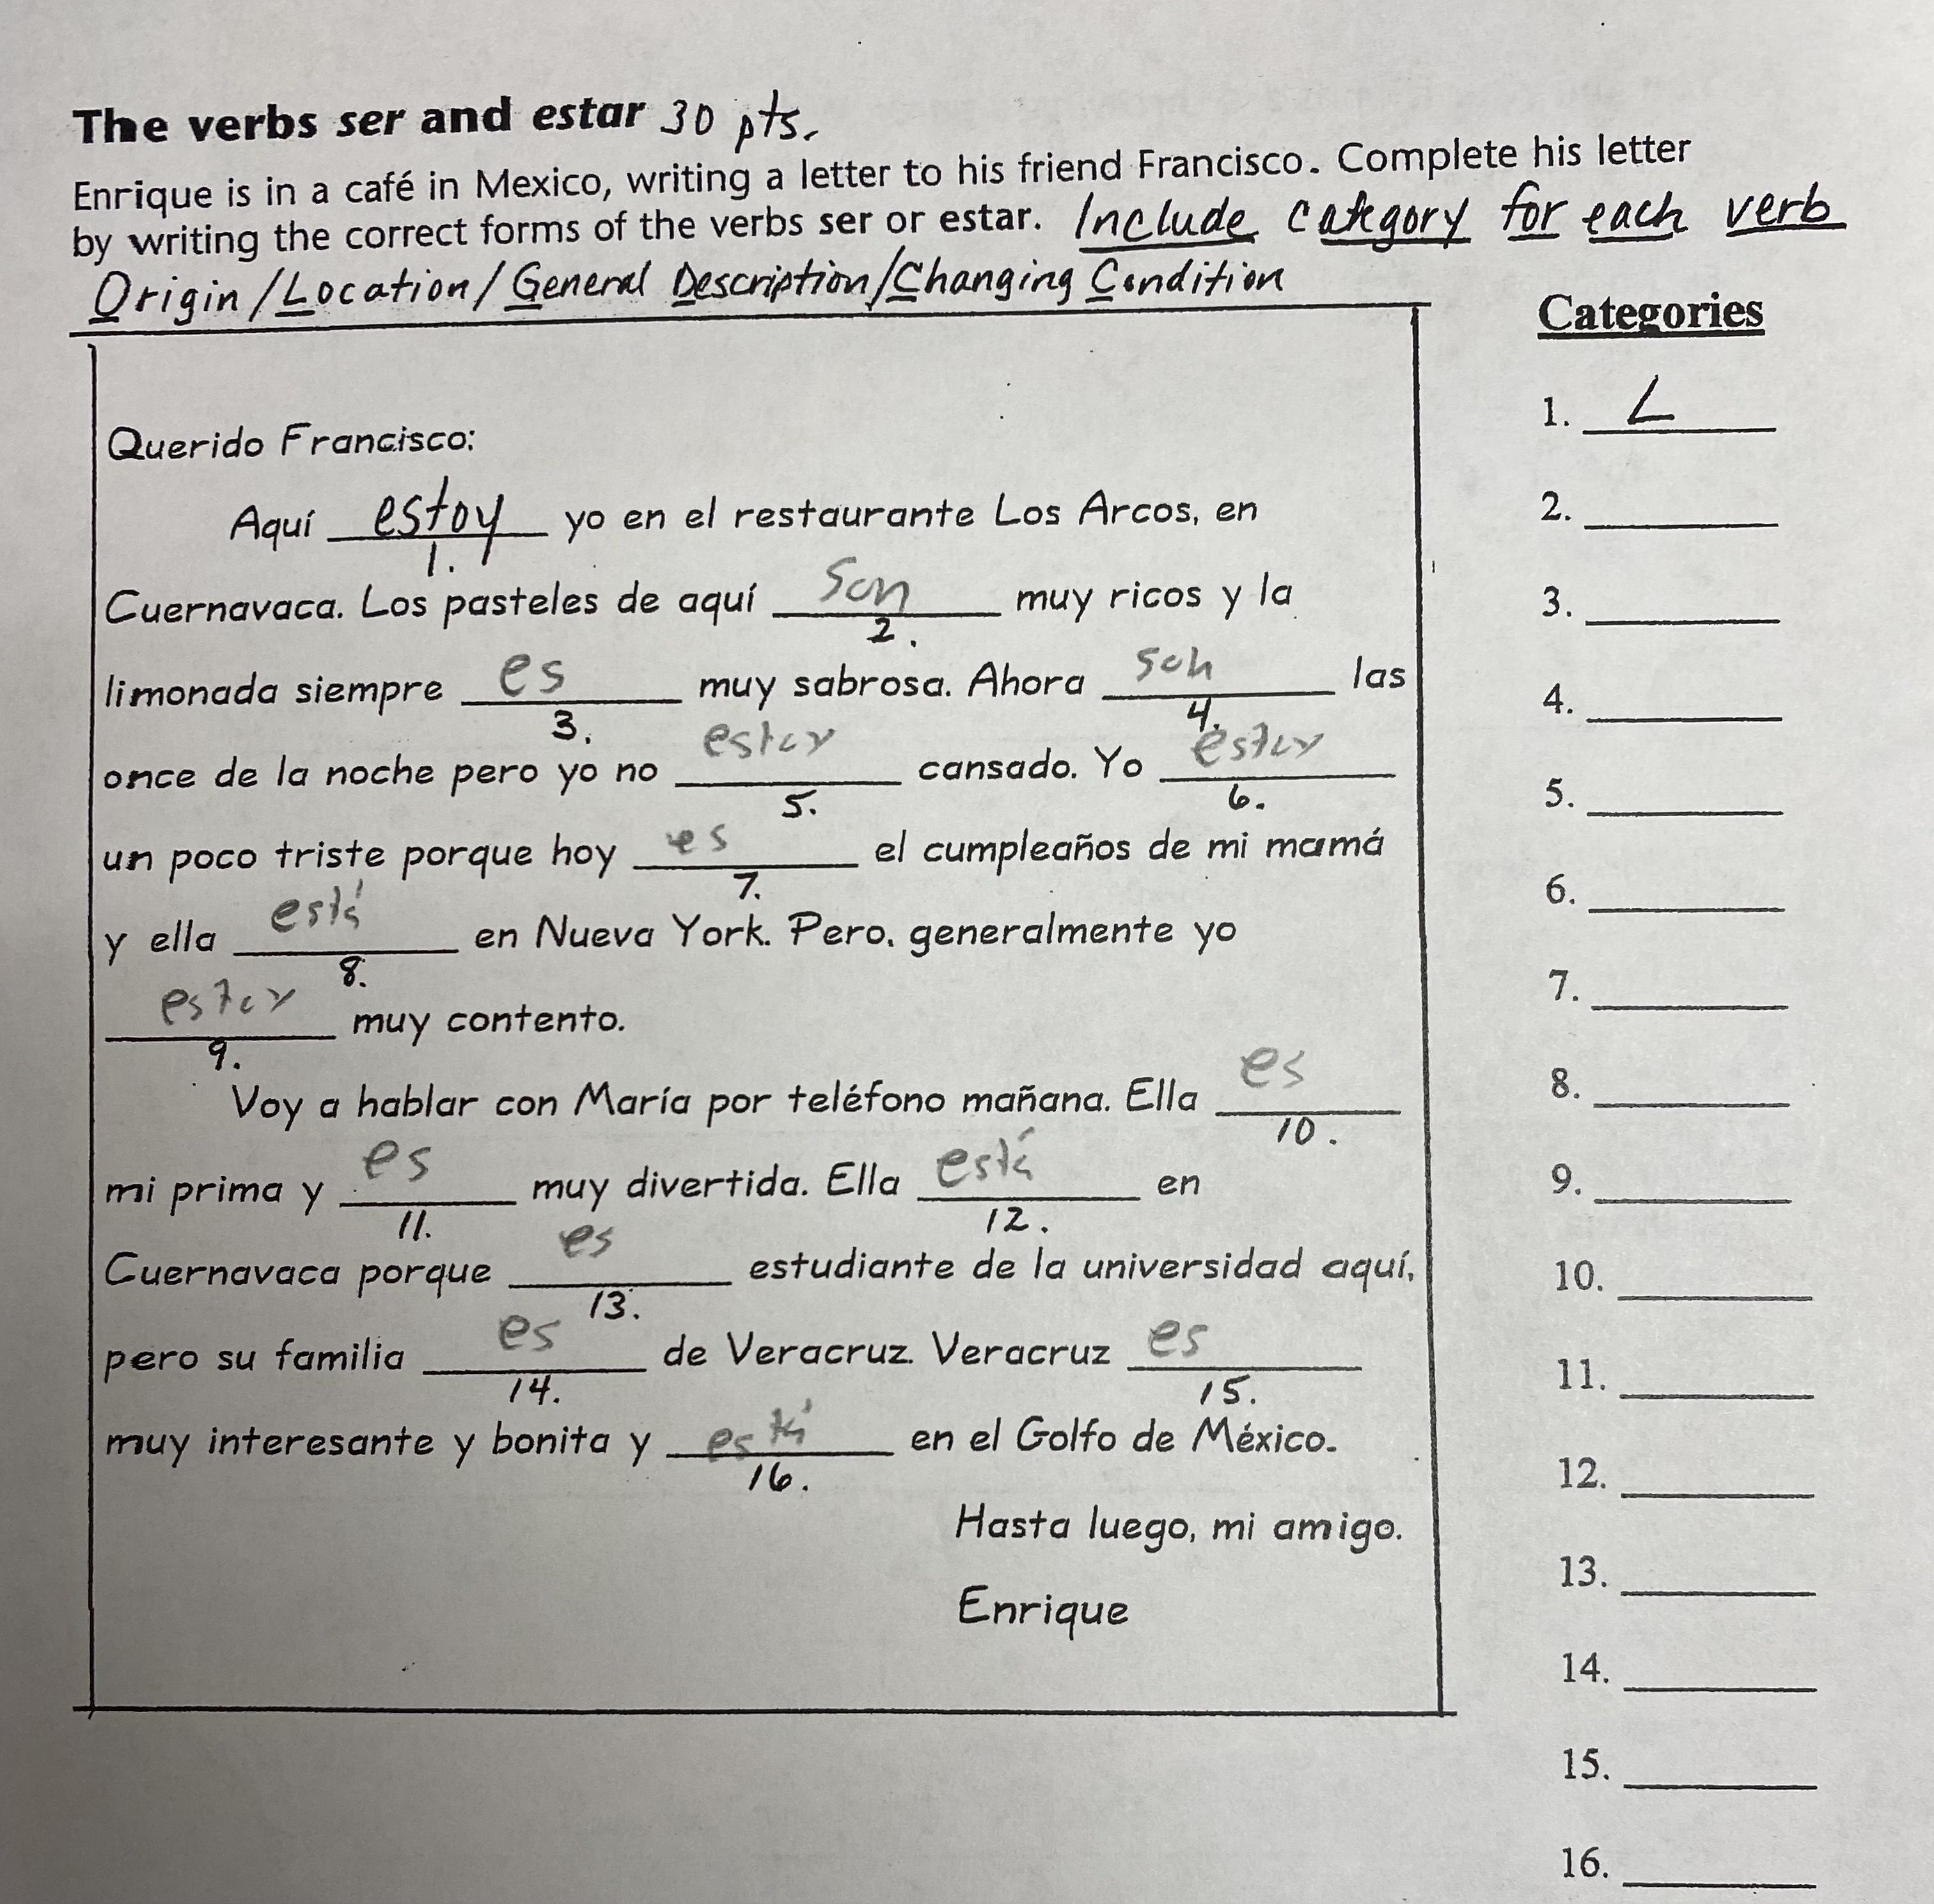 The verbs ser and estar 30 pts.
Enrique is in a café in Mexico, writing a letter to his friend Francisco. Complete his letter
by writing the correct forms of the verbs ser or estar. Include category for each verb
Origin/Location/General Description/Changing Condition
Categories
Querido Francisco:
Aquí estoy yo en el restaurante Los Arcos, en
1.
Cuernavaca. Los pasteles de aquí son muy ricos y la
2.
limonada siempre es muy sabrosa. Ahora son las
3. 4.
once de la noche pero yo no estoy cansado. Yo estoy
5. 6.
un poco triste porque hoy es el cumpleaños de mi mamá
7.
y ella está en Nueva York. Pero, generalmente yo
8.
estoy muy contento.
9.
Voy a hablar con María por teléfono mañana. Ella es
10.
mi prima y es muy divertida. Ella está en
11. 12.
Cuernavaca porque es estudiante de la universidad aquí,
13.
pero su familia es de Veracruz. Veracruz es
14. 15.
muy interesante y bonita y está en el Golfo de México.
16.
Hasta luego, mi amigo.
Enrique
1. L
2.
3.
4.
5.
6.
7.
8.
9.
10.
11.
12.
13.
14.
15.
16.